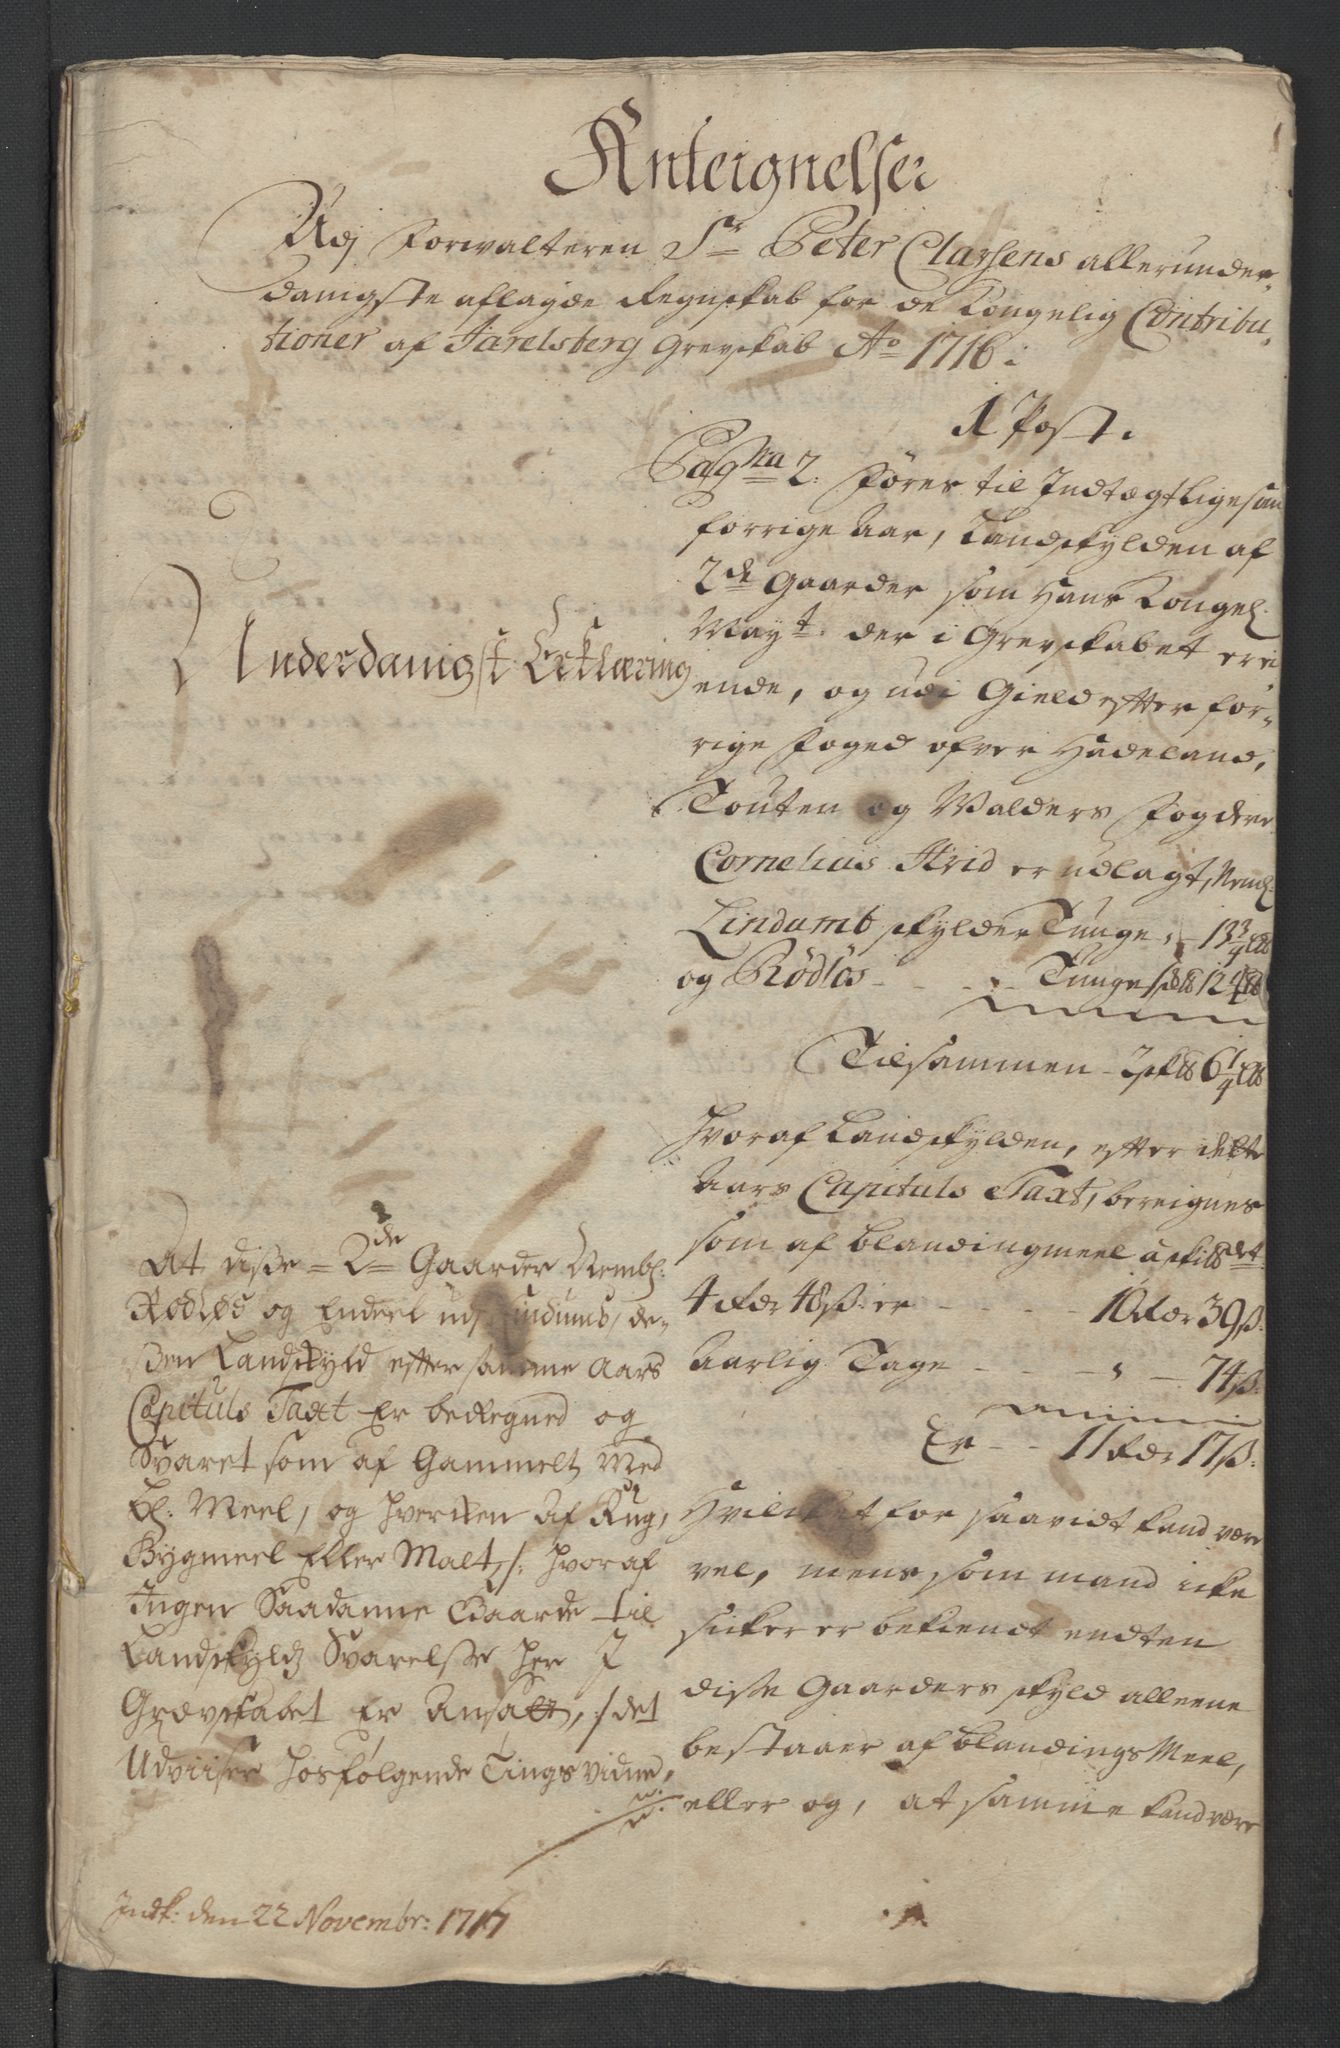 Anteignelser
Udj Forwalteren Sr Peter Claysens allerunder-
danigste aflagde Regnskab for de Kongelig Contribu-
tioner af Jarelsberg Grevskab Ao 1716.
1 Post.
Pagina 2. Føres til Indtægt ligesom
forrige Aar, Landskylden af
2de Gaarder som Hans Kongel.
Mayt. der i Grevskabet er ei-
ende, og udi Gield efter for-
rige Foged ofver Hadeland,
Touten og Walders Fogderie
Cornelius Strid er udlagt, Neml:
Lindumb skylder Tunge - 13 3/4
og Rødløs - - - Tunge 12
Tilsammen - 2 6 1/4
hvoraf Landskylden, efter dette
Aars Capituls Taxt, bereignes
som af blandingmeel a
4 rdr 48 ß: er - - - - 10 rdr 39 ß:
Aarlig Tage - - - - 74 ß:
Er - - 11 rdr 17 ß:
Hvilket for saavidt kand være
vel, mens som mand icke
sicker er bekiendt endten
disse Gaarders skyld alleene
bestaaer af blandings Meel,
eller og, at samme kand være
Underdanigst Erklæring
At disse 2de Gaarder Nembl:
Rødløs og Endeel udj Lindums, de-
ßen Landskyld efter samme Aars
Capituls Taxt Er beregned og
Svaret som af Gammelt Med
bl: Meel, og hverken af Rug,
Bygmeel Eller Malt, /: hvoraf
Ingen Saadanne Gaarde til
Landskyld Svarelse her I
Grævskabet Er Ansatt, :/ det
Udviiser hosfølgende Tingsvidne,
Indk: den 22 Novembr: 1717